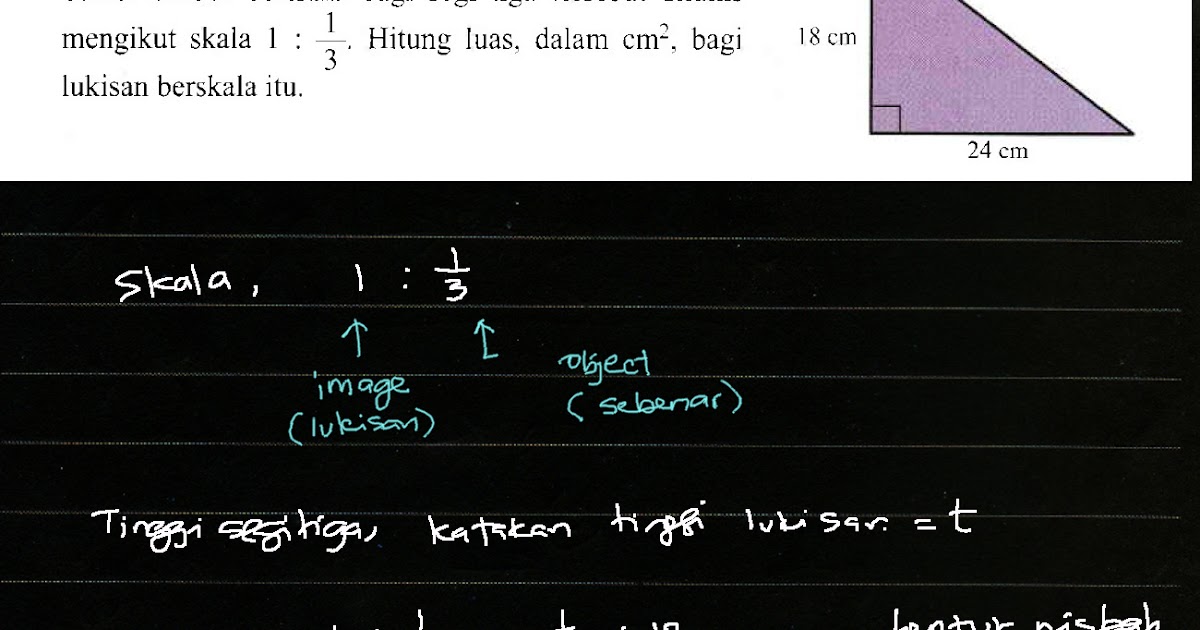 mengikut skala 1 : 1/3. Hitung luas, dalam cm², bagi
lukisan berskala itu.
18 cm
24 cm
Skala, 1 : 1/3
image
(lukisan)
object
(sebenar)
Tinggi segitiga, katakan tinggi lukisan = t